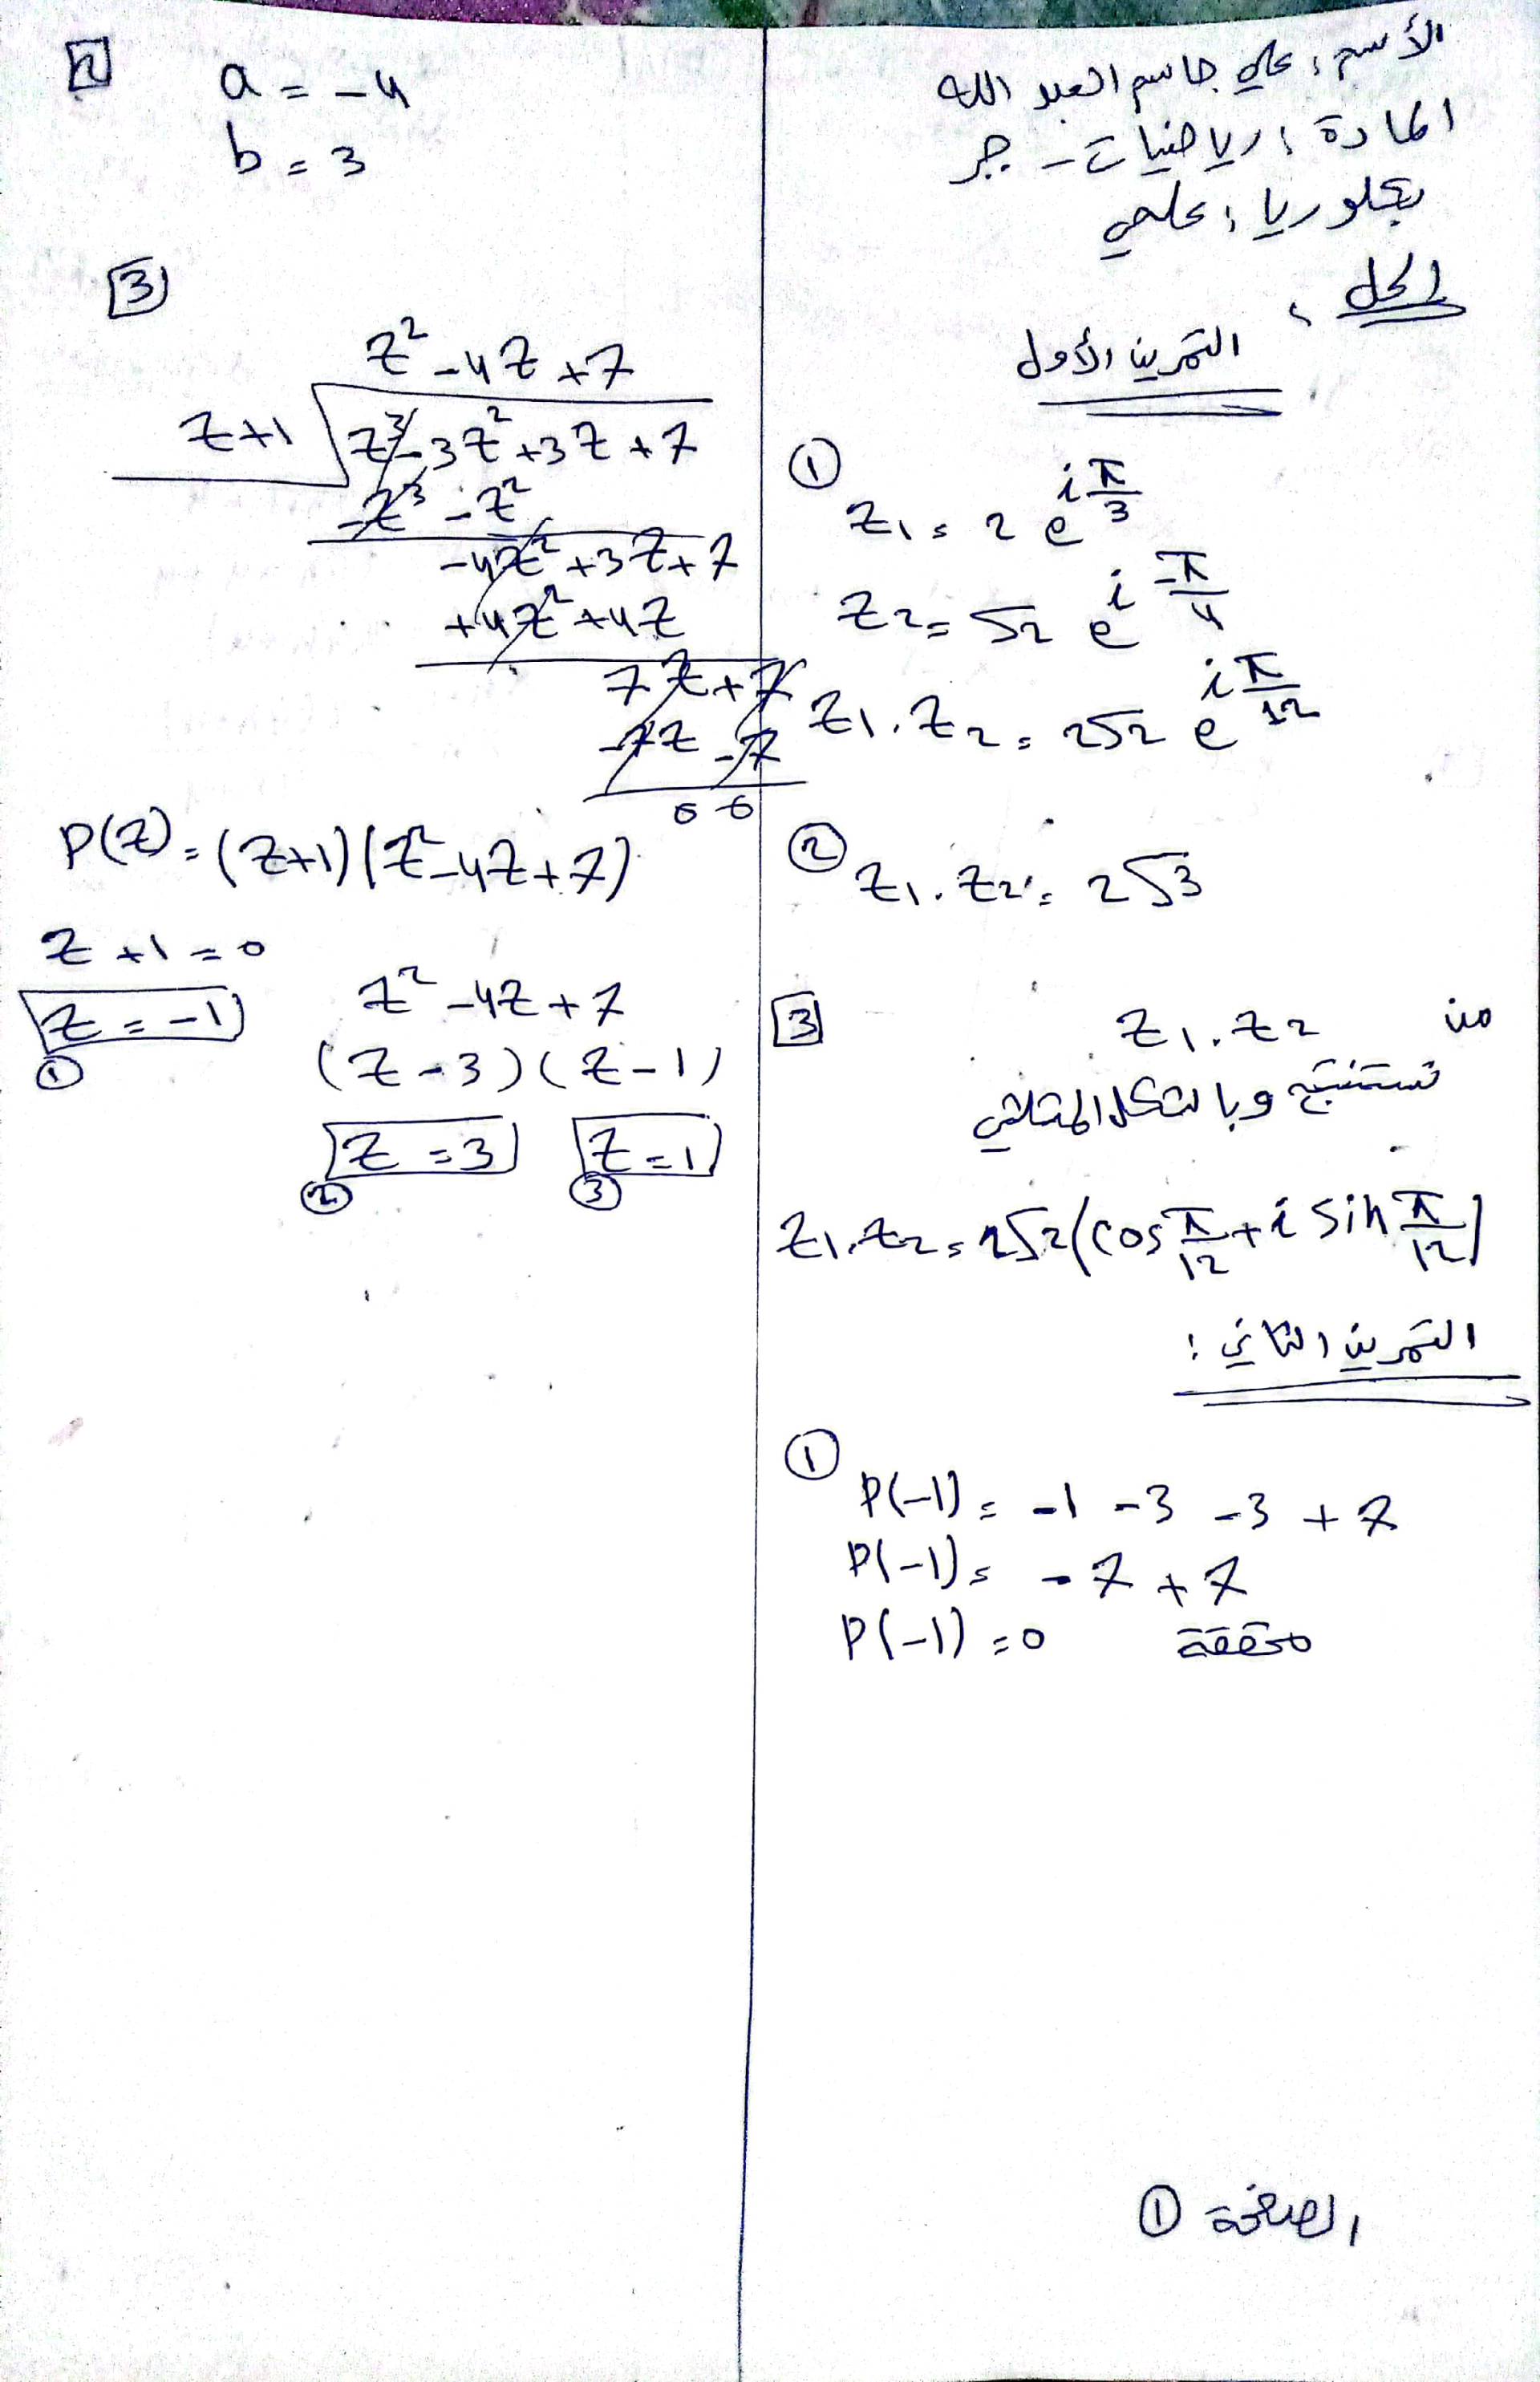 الأسم : علي جاسم العبد الله
المادة : رياضيات - جبر
بكلوريا : علمي
الحل :
التمرين الأول
① z1 = 2 e^{i π/3}
z2 = √2 e^{i -π/4}
z1 . z2 = 2√2 e^{i π/12}
② z1 . z2 = 2√3
3 من z1 . z2
نستنتج وبالشكل المثلثي
z1 . z2 = 2√2 (cos π/12 + i sin π/12)
التمرين الثاني :
① P(-1) = -1 -3 -3 +7
P(-1) = -7 +7
P(-1) = 0 محققة
الصفحة ①
2 a = -4
b = 3
3
z² -4z +7
z+1 z³ -3z² +3z +7
-z³ -z²
-4z² +3z +7
+4z² +4z
7z +7
-7z -7
0 0
P(z) = (z+1)(z² -4z +7)
z +1 = 0
z = -1
①
z² -4z +7
(z -3)(z -1)
z = 3 z = 1
② ③